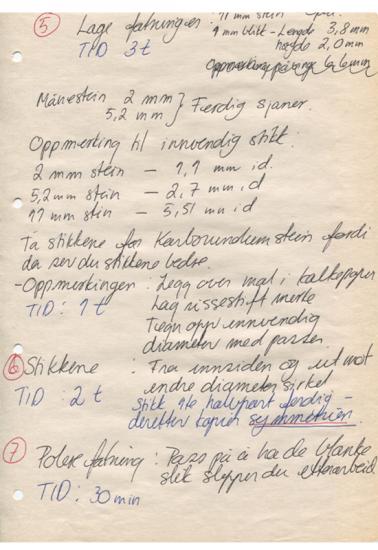 ⑤ Lage fatninger: 11 mm stein
TID 3t
9 mm blikk - Lengde 3,8 mm
høyde 2,0 mm
Oppmerking 6,6 mm
Månestein 2 mm
5,2 mm } Færdig sjaner.
Oppmerking til innvendig stikk:
2 mm stein - 1,1 mm id.
5,2 mm stein - 2,7 mm id
11 mm stein - 5,51 mm id
Ta stikkene før Karborundumstein fordi
da ser du stikkene bedre.
-Oppmerkingen: Legg over mål i kalkepapir
TID: 1t Lag rissestift merke
Tegn opp innvendig
diameter med passer.
⑥ Stikkene : Fra innsiden og ut mot
TID: 2t indre diameter sirkel
Stikk 1te halvpart ferdig -
deretter kopier symmetrien.
⑦ Polere fatning: Pass på å ha de blanke
slik slipper du etterarbeid
TID: 30 min